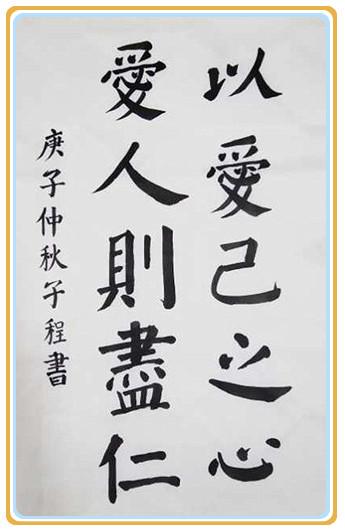 以愛己之心
愛人則盡仁
庚子仲秋子程書